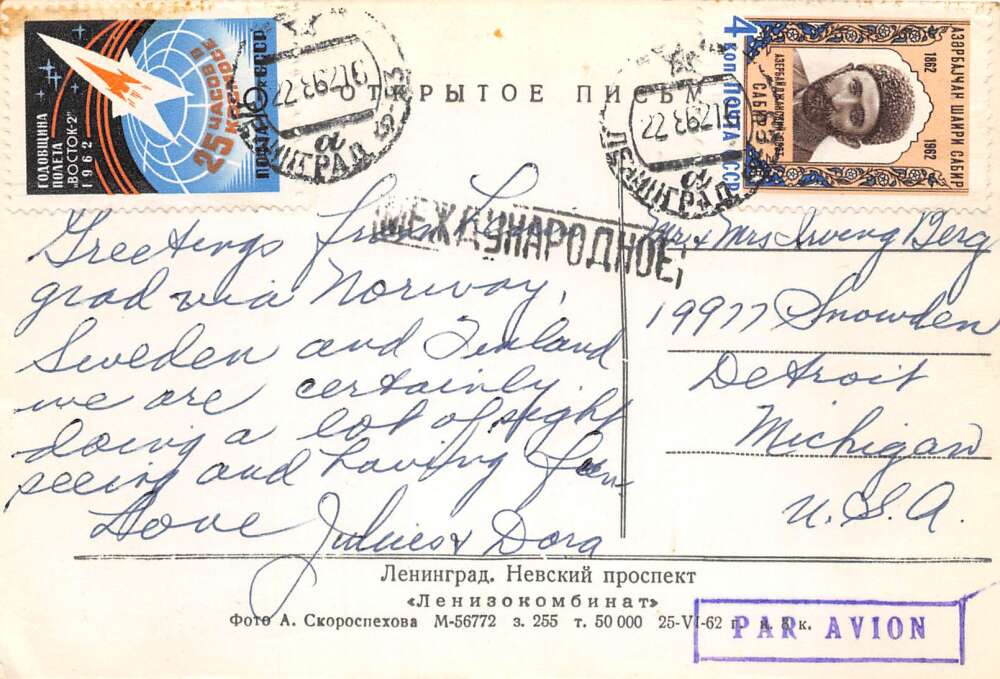 ГОДОВЩИНА
ПОЛЕТА
"ВОСТОК-2"
1962
25 ЧАСОВ В
КОСМОСЕ
ПОЧТА СССР
ЛЕНИНГРАД
4 коп ПОЧТА СССР
АЗӘРБАЈҸАН ШАИРИ САБИР
1862
1962
АЗЕРБАЙДЖАНСКИЙ
САБИР
ЛЕНИНГРАД
ОТКРЫТОЕ ПИСЬМ
МЕЖДУНАРОДНОЕ
Greetings from Lenin
grad via Norway,
Sweden and Finland
we are certainly
doing a lot of sight
seeing and having fun
Love
Julius & Dora
Mr & Mrs Irving Berg
19977 Snowden
Detroit
Michigan
U.S.A.
Ленинград. Невский проспект
«Ленизокомбинат»
Фото А. Скороспехова М-56772 з. 255 т. 50 000 25-VI-62 г. к.
PAR AVION